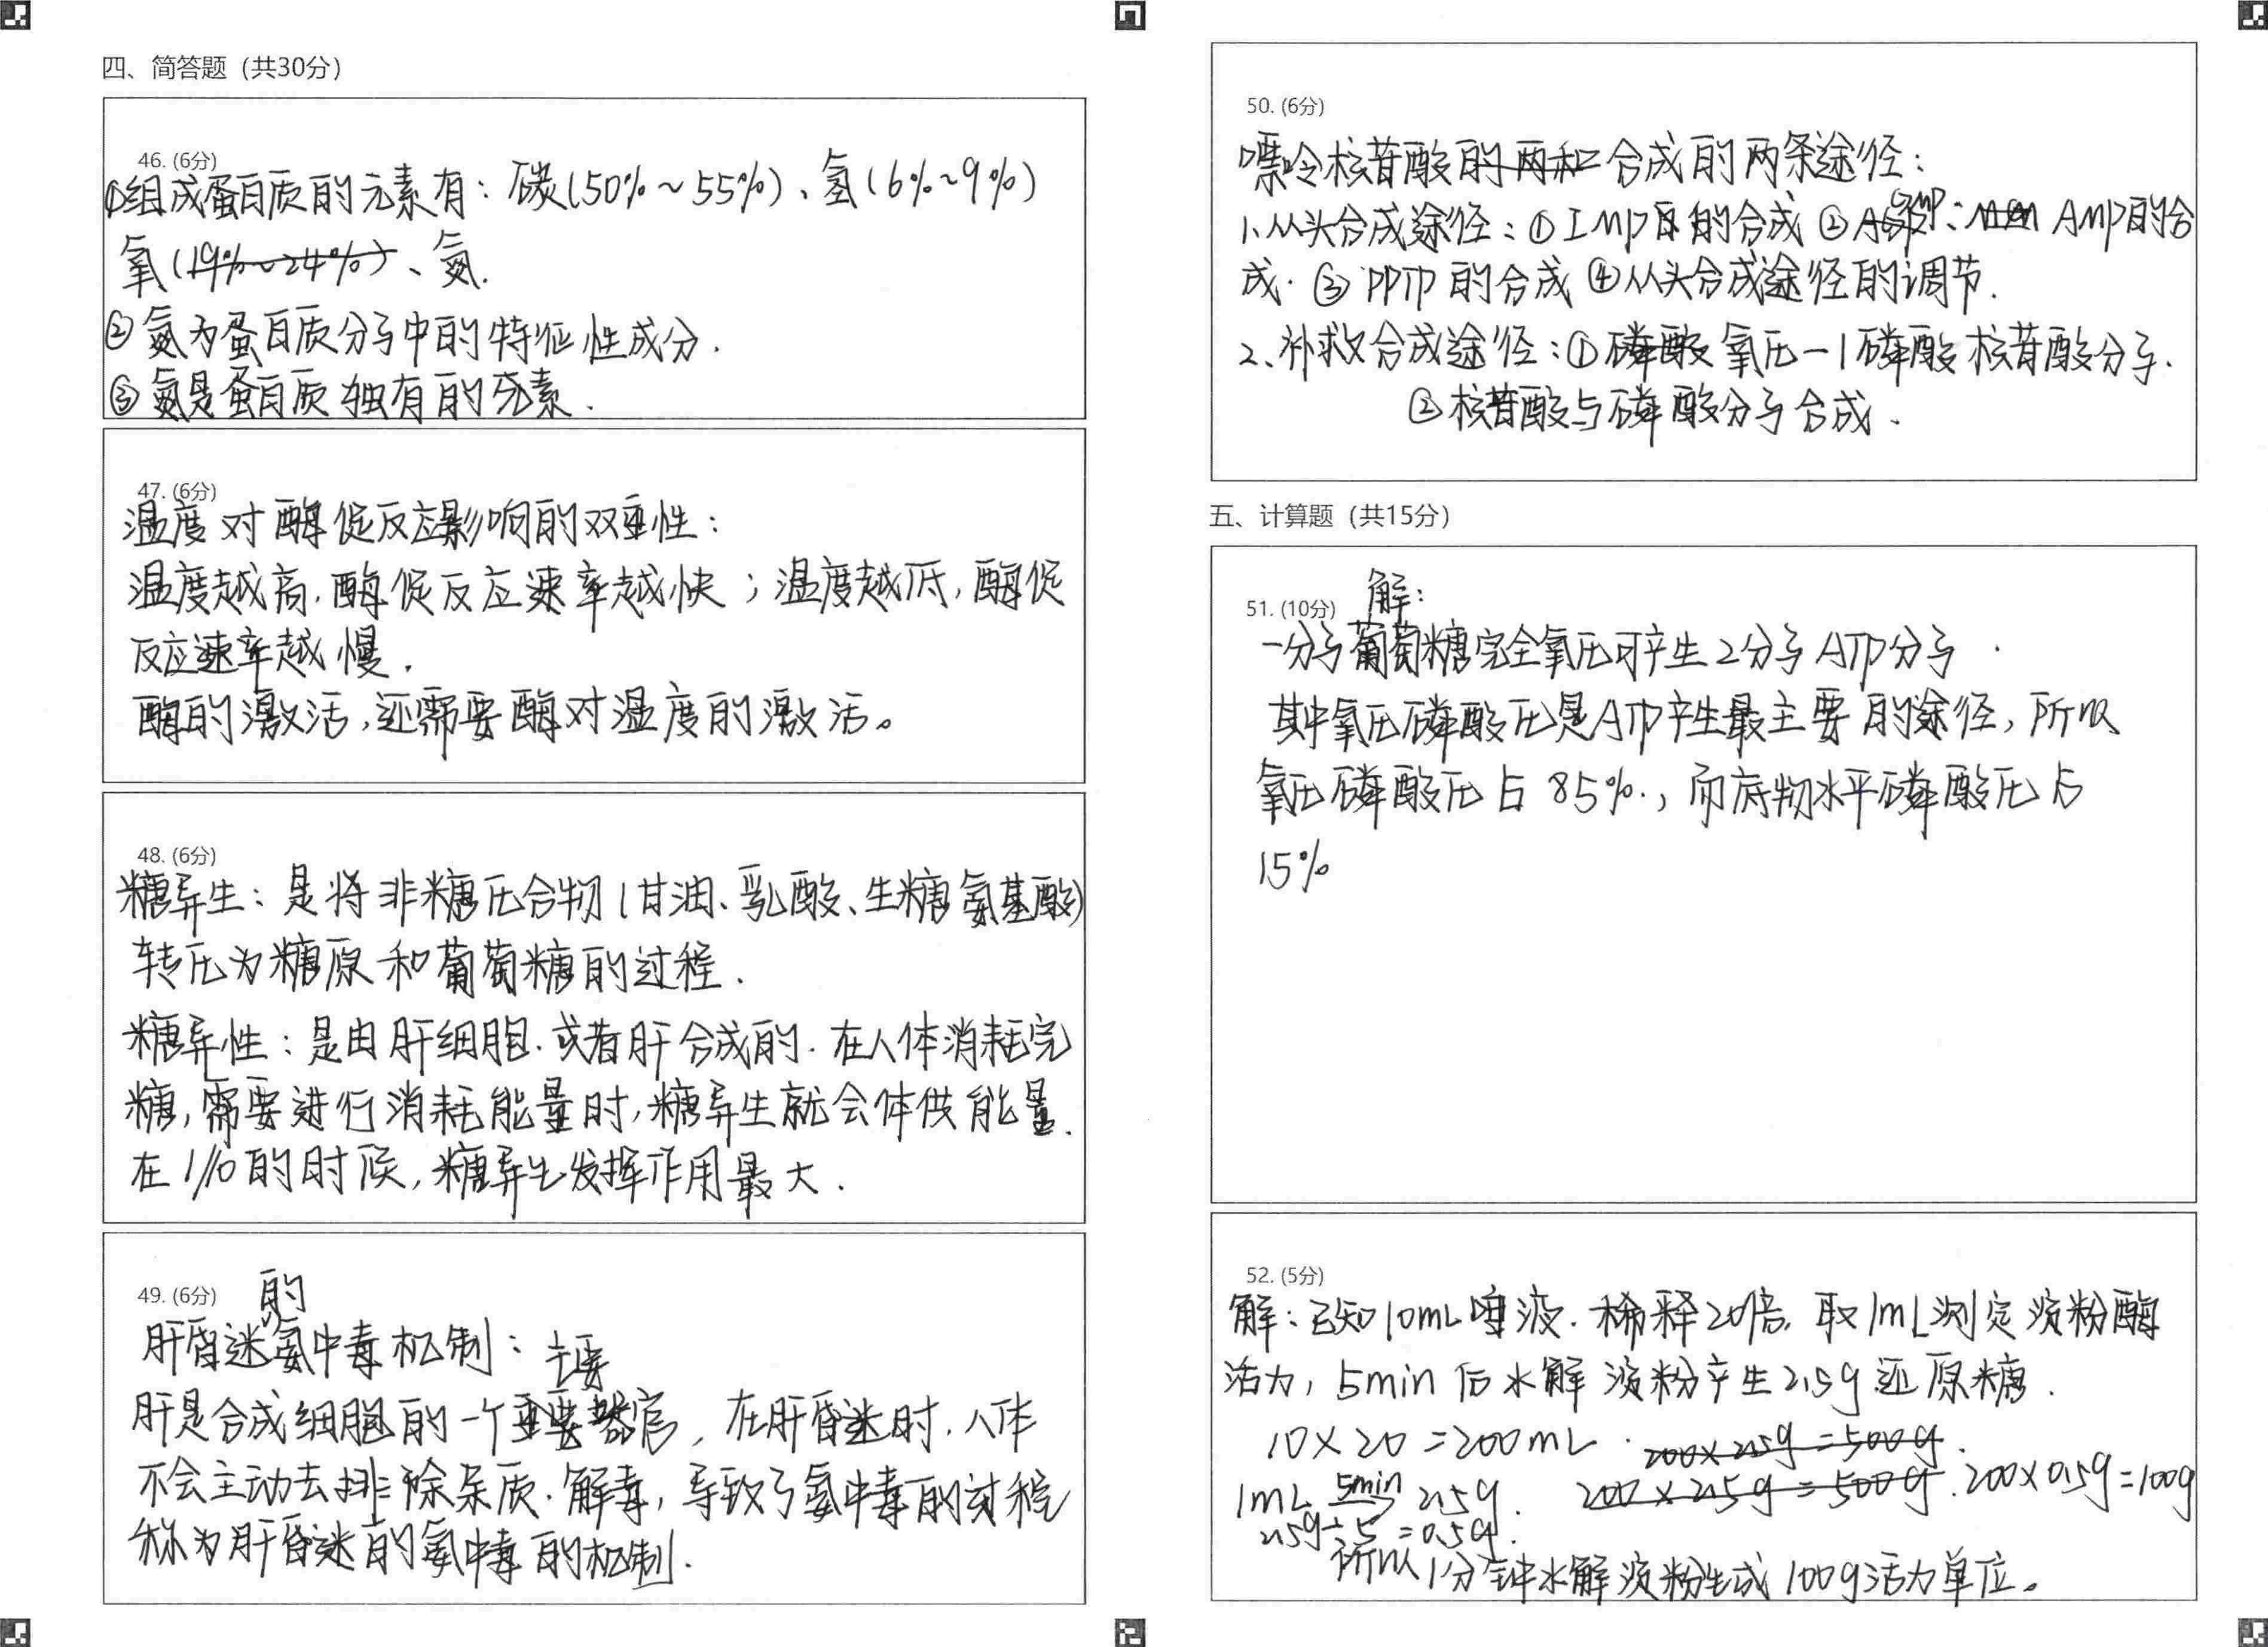 四、简答题（共30分）
46. (6分)
①组成蛋白质的元素有：碳(50%～55%)、氢(6%～9%)
氧(19%～24%)、氮.
②氮为蛋白质分子中的特征性成分.
③氮是蛋白质独有的元素.
47. (6分)
温度对酶促反应影响的双重性：
温度越高,酶促反应速率越快；温度越低,酶促
反应速率越慢.
酶的激活,还需要酶对温度的激活。
48. (6分)
糖异生：是将非糖化合物(甘油、乳酸、生糖氨基酸)
转化为糖原和葡萄糖的过程.
糖异性：是由肝细胞.或者肝合成的.在人体消耗完
糖,需要进行消耗能量时,糖异生就会体供能量.
在1/10的时候,糖异生发挥作用最大.
49. (6分)
肝昏迷的氨中毒机制：
肝是合成细胞的一个主要器官,在肝昏迷时.人体
不会主动去排除杂质.解毒,导致了氨中毒的过程
称为肝昏迷的氨中毒的机制.
50. (6分)
嘌呤核苷酸的两和合成的两条途径：
1、从头合成途径：①IMP的合成 ②GMP: AMP的合
成. ③PPTP的合成 ④从头合成途径的调节.
2、补救合成途径：①磷酸氧化一1磷酸核苷酸分子.
②核苷酸与磷酸分子合成.
五、计算题（共15分）
51. (10分) 解：
一分子葡萄糖完全氧化可产生2分子ATP分子.
其中氧化磷酸化是ATP产生最主要的途径,所以
氧化磷酸化占85%.,而底物水平磷酸化占
15%
52. (5分)
解：已知10mL唾液.稀释20倍.取1mL测定淀粉酶
活力,5min后水解淀粉产生2.5g还原糖.
10×20=200mL. 200×2.5g=500g.
1mL 5min→ 2.5g. 200×2.5g=500g. 200×0.5g=100g
2.5g÷5=0.5g.
所以1分钟水解淀粉生成100g活力单位。